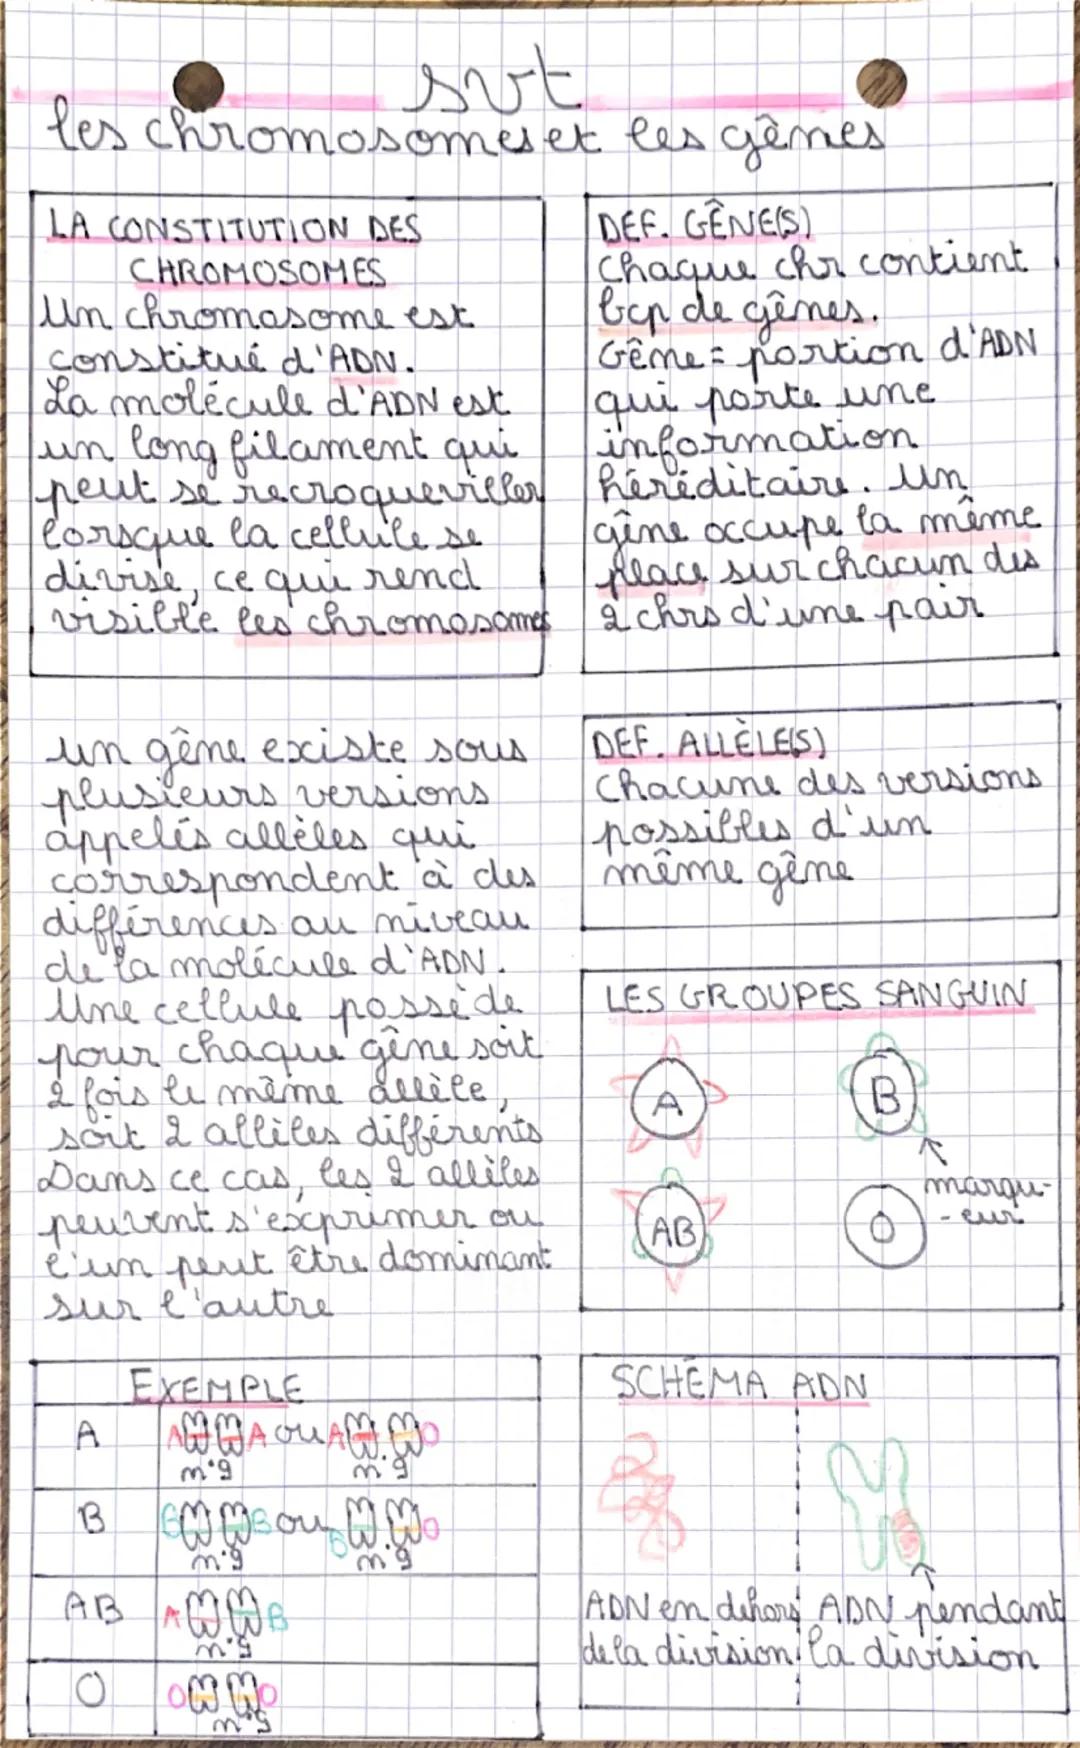 svt
les chromosomes et les gênes
LA CONSTITUTION DES
CHROMOSOMES
Un chromosome est
constitué d'ADN.
La molécule d'ADN est
un long filament qui
peut se recroqueviller
lorsque la cellule se
divise, ce qui rend
visible les chromosomes
DEF. GÊNE(S)
Chaque chr contient
bcp de gênes.
Gêne = portion d'ADN
qui porte une
information
héréditaire. Un
gêne occupe la même
place sur chacun des
2 chrs d'une pair
un gêne existe sous
plusieurs versions
appelés allèles qui
correspondent à des
différences au niveau
de la molécule d'ADN.
Une cellule possède
pour chaque gêne soit
2 fois le même allèle,
soit 2 allèles différents
Dans ce cas, les 2 allèles
peuvent s'exprimer ou
l'un peut être dominant
sur l'autre
DEF. ALLÈLE(S)
Chacune des versions
possibles d'un
même gêne
LES GROUPES SANGUIN
A
B
AB
O
marqu-
-eur
EXEMPLE
A
A A ou A O
n°9 n°9
B
B B ou B O
n°9 n°9
AB
A B
n°9
O
O O
n°9
SCHÉMA ADN
ADN en dehors
de la division
ADN pendant
la division